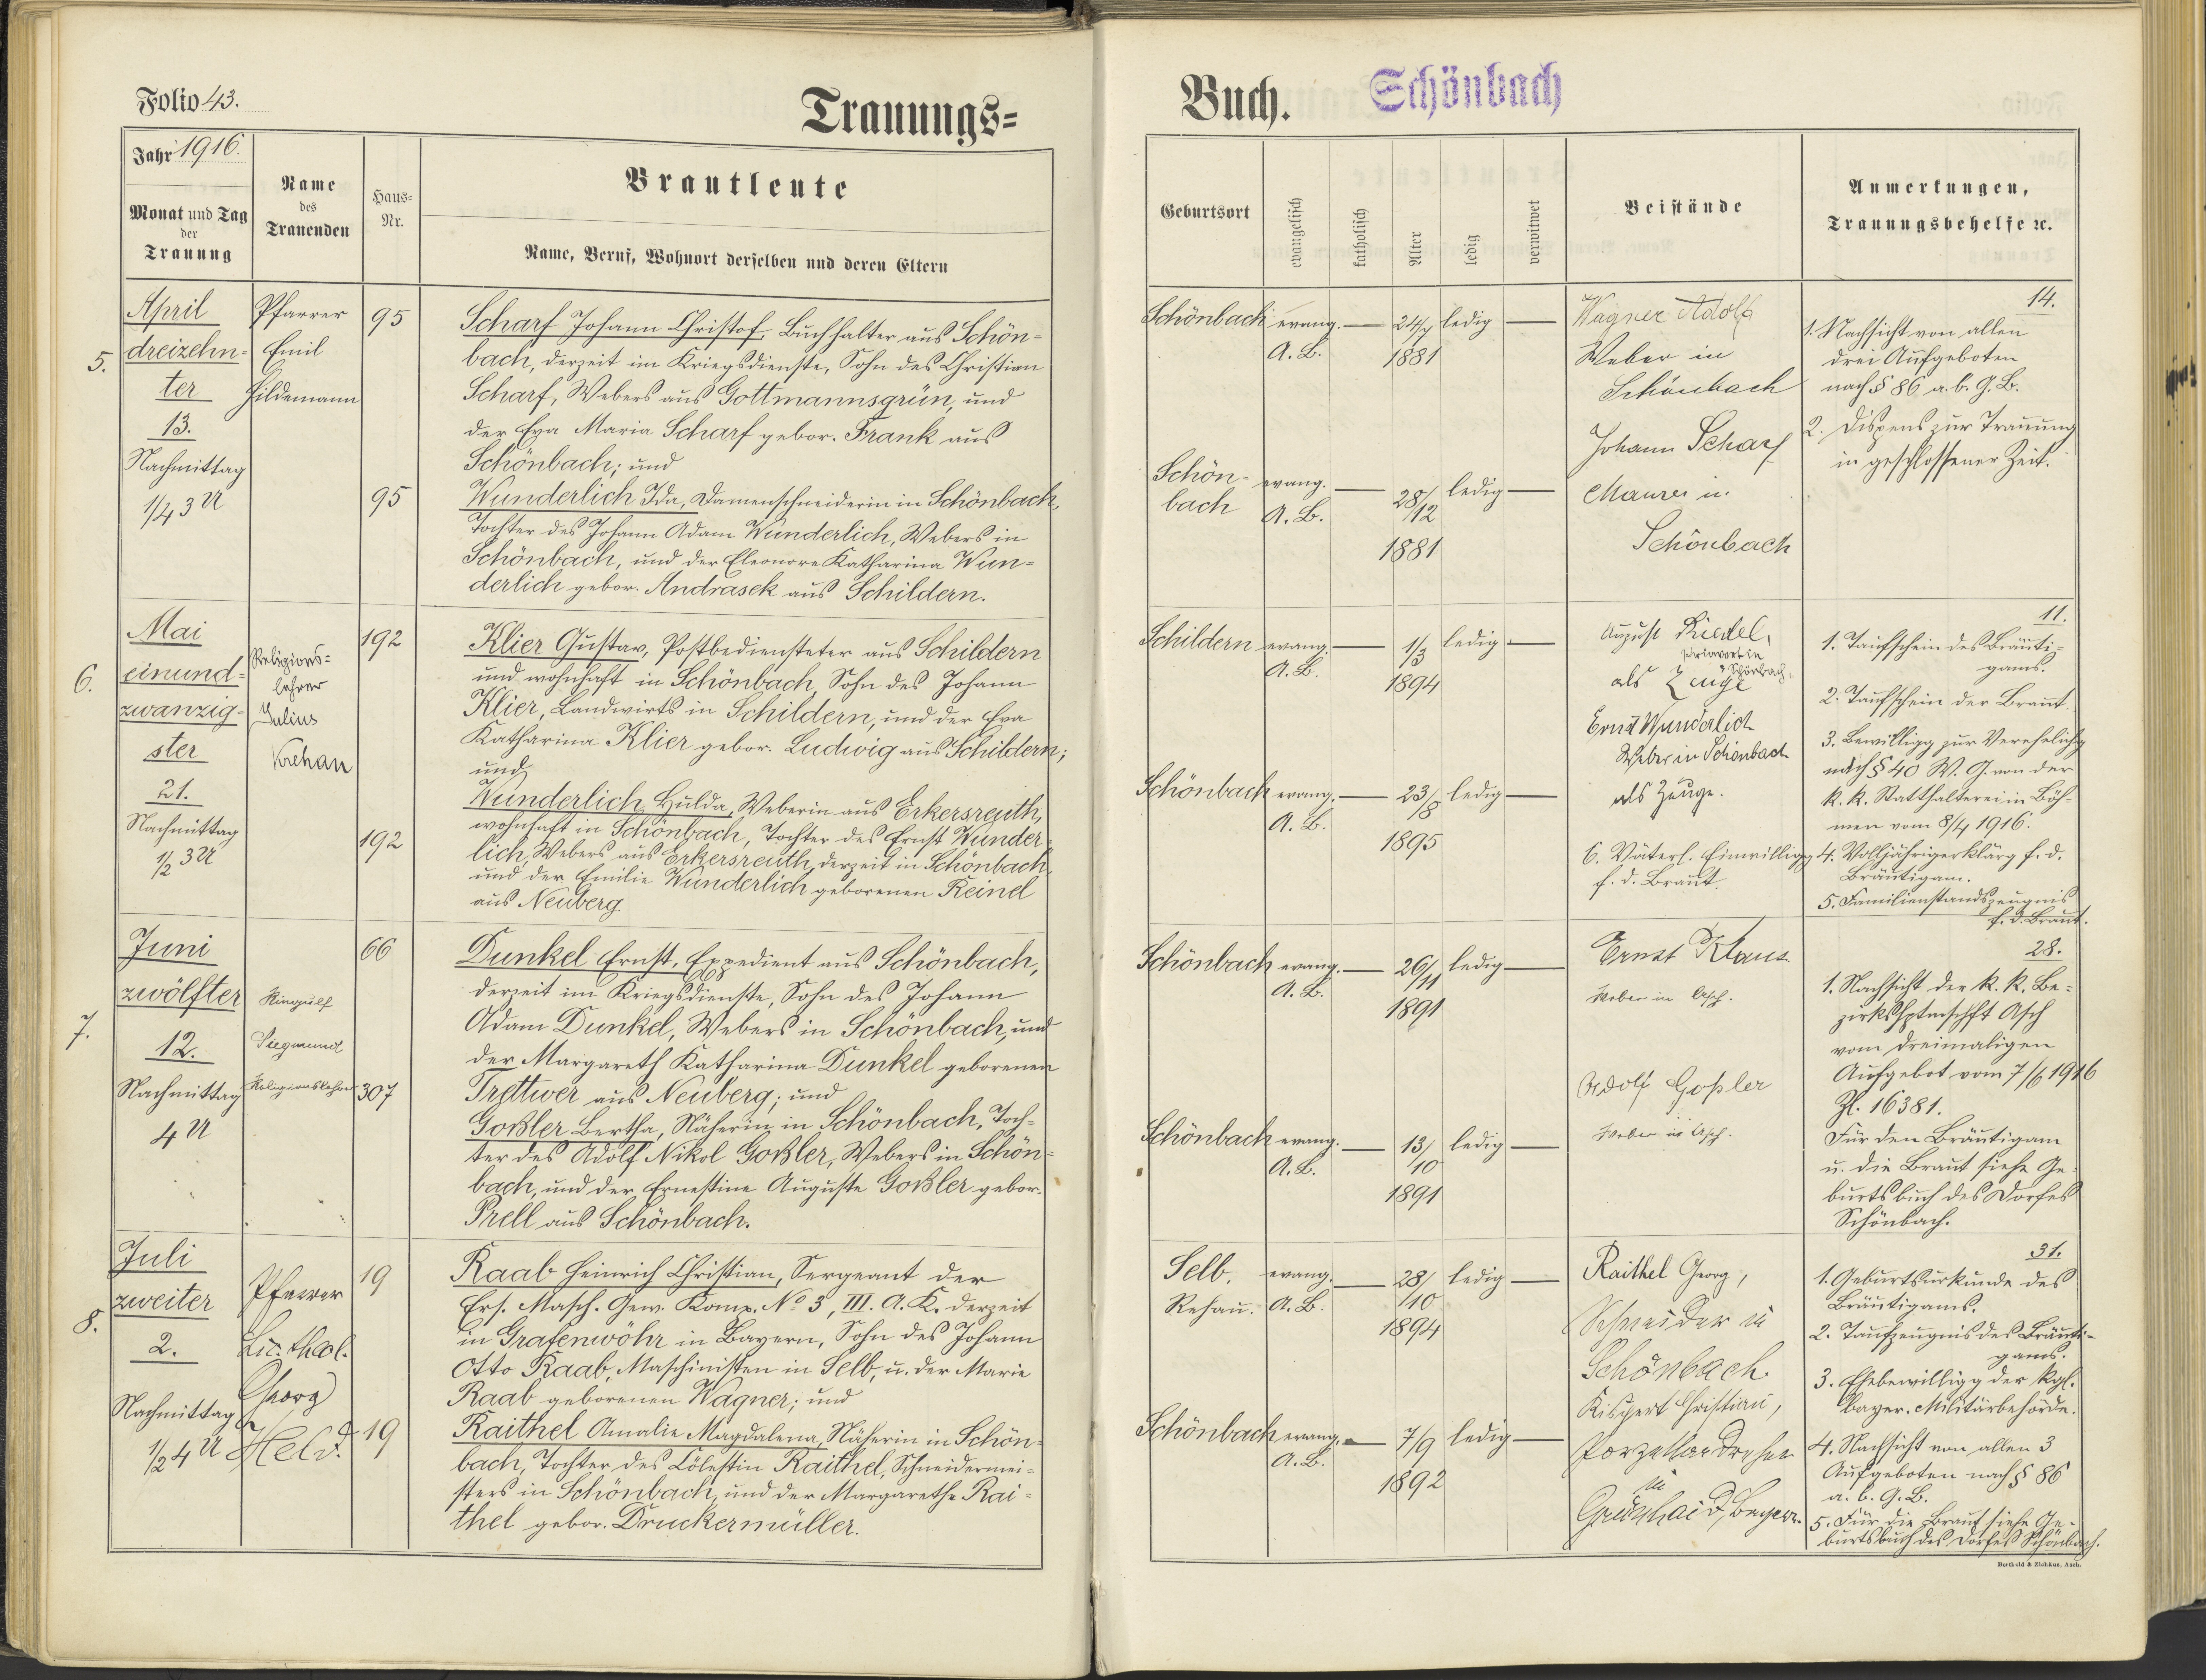 Folio 43.
Trauungs=
Jahr 1916.
Monat und Tag
der
Trauung
Name
des
Trauenden
Haus=
Nr.
Brautleute
Name, Beruf, Wohnort derselben und deren Eltern
5.
April
dreizehn-
ter
13.
Nachmittag
1/4 3 U
Pfarrer
Emil
Hildemann
95
95
Scharf Johann Christof, Buchhalter aus Schön=
bach, derzeit im Kriegsdienste, Sohn des Christian
Scharf, Webers aus Gottmannsgrün, und
der Eva Maria Scharf gebor. Frank aus
Schönbach; und
Wunderlich Ida, Damenschneiderin in Schönbach,
Tochter des Johann Adam Wunderlich, Webers in
Schönbach, und der Eleonore Katharina Wun=
derlich gebor. Andrasek aus Schildern.
6.
Mai
einund-
zwanzig-
ster
21.
Nachmittag
1/2 3 U
Religions=
lehrer
Julius
Krehan
192
192
Klier Gustav, Postbediensteter aus Schildern
und wohnhaft in Schönbach, Sohn des Johann
Klier, Landwirts in Schildern, und der Eva
Katharina Klier gebor. Ludwig aus Schildern;
und
Wunderlich Hulda, Weberin aus Erkersreuth,
wohnhaft in Schönbach, Tochter des Ernst Wunder-
lich, Webers aus Erkersreuth, derzeit in Schönbach,
und der Emilie Wunderlich geborenen Reinel
aus Neuberg.
7.
Juni
zwölfter
12.
Nachmittag
4 U
Hingulf
Siegmund
Religionslehrer
66
307
Dunkel Ernst, Expedient aus Schönbach,
derzeit im Kriegsdienste, Sohn des Johann
Adam Dunkel, Webers in Schönbach, und
der Margareth Katharina Dunkel geborenen
Trettwer aus Neuberg; und
Goßler Bertha, Näherin in Schönbach, Toch-
ter des Adolf Nikol Goßler, Webers in Schön-
bach, und der Ernestine Auguste Goßler gebor.
Prell aus Schönbach.
8.
Juli
zweiter
2.
Nachmittag
1/2 4 U
Pfarrer
Lic. theol.
Georg
Held.
19
19
Raab Heinrich Christian, Sergeant der
Ers. Masch. Gew. Komp. No 3, III. A. K. derzeit
in Grafenwöhr in Bayern, Sohn des Johann
Otto Raab, Maschinisten in Selb, u. der Marie
Raab geborenen Wagner; und
Raithel Amalie Magdalena, Näherin in Schön-
bach, Tochter des Cölestin Raithel, Schneidermei=
sters in Schönbach, und der Margarethe Rai=
thel gebor. Druckermüller.
Buch.
Schönbach
Geburtsort
evangelisch
katholisch
Alter
ledig
verwitwet
Beistände
Anmerkungen,
Trauungsbehelfe ꝛc.
Schönbach evang. — 24/7 ledig —
A. B. 1881
Schön- evang. — 28/12 ledig —
bach A. B.
1881
Wagner Adolf
Weber in
Schönbach
Johann Scharf
Maurer in
Schönbach
14.
1. Nachsicht von allen
drei Aufgeboten
nach § 86 a. b. G. B.
2. Dispens zur Trauung
in geschlossener Zeit.
Schildern evang. — 1/3 ledig —
A. B. 1894
Schönbach evang. — 23/8 ledig —
A. B.
1895
August Riedel,
Privatier in
Schönbach,
als Zeuge
Ernst Wunderlich
Weber in Schönbach
als Zeuge.
6. Väterl. Einwilligg
f. d. Braut.
11.
1. Taufschein des Bräuti-
gams.
2. Taufschein der Braut.
3. Bewilligg zur Verehelichg
nach § 40 W. G. von der
k. k. Statthalterei in Böh-
men vom 8/4 1916.
4. Volljährigerklärg f. d.
Bräutigam.
5. Familienstandszeugnis
f. d. Braut.
Schönbach evang. — 26/11 ledig —
A. B.
1891
Schönbach evang. — 13/10 ledig —
A. B.
1891
Ernst Klaus
Weber in Asch.
Adolf Goßler
Weber in Asch.
28.
1. Nachsicht der k. k. Be=
zirkshptmschft Asch
vom dreimaligen
Aufgebot vom 7/6 1916
Zl. 16381.
Für den Bräutigam
u. die Braut siehe Ge-
burtsbuch des Dorfes
Schönbach.
Selb, evang. — 28/10 ledig —
Rehau. A. B.
1894
Schönbach evang. — 7/9 ledig —
A. B.
1892
Raithel Georg,
Schneider in
Schönbach.
Kispert Christian,
Porzellandreher
in
Grünhaid, Bayern.
31.
1. Geburtsurkunde des
Bräutigams.
2. Taufzeugnis des Bräuti-
gams.
3. Ehebewilligg der kgl.
bayer. Militärbehörde.
4. Nachsicht von allen 3
Aufgeboten nach § 86
a. b. G. B.
5. Für die Braut siehe Ge-
burtsbuch des Dorfes Schönbach.
Berthold & Zichäus, Asch.